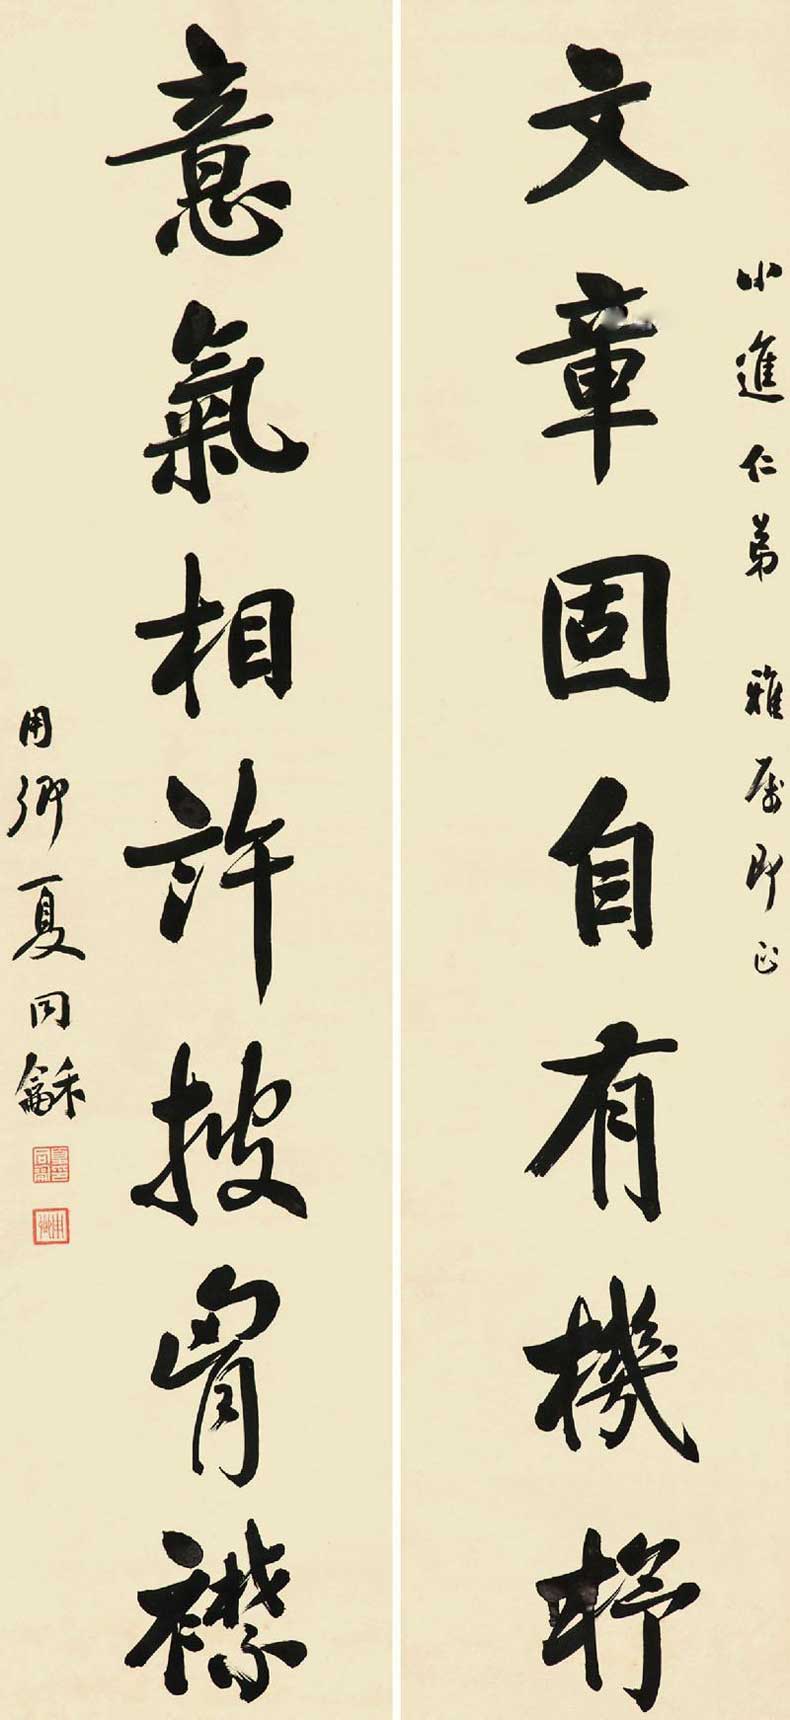 小進仁弟 雅屬即正
文章固自有機杼
意氣相許披胷襟
用卿夏同龢